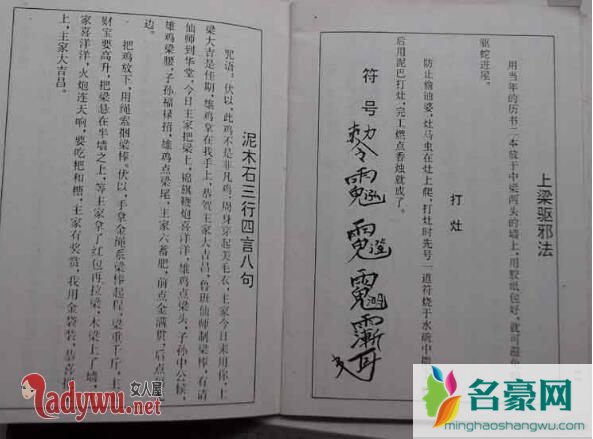 上梁驱邪法
用当年的历书二本放于中梁两头的墙上,用胶纸包好,就可避
驱蛇进屋。
打灶
防止偷油婆,灶马虫在灶上爬,打灶时先号一道符烧于水碗中
后用泥巴打灶,完工燃点香烛就成了。
符号
敕令
泥木石三行四言八句
咒语。伏以,此鸡不是非凡鸡,周身穿起美毛衣,主家今日来用你,上
梁大吉是佳期,雄鸡拿在我手上,恭驾主家大吉昌,鲁班仙师制梁棒,有请
仙师到华堂,今日主家把梁上,锦旗鞭炮喜洋洋,雄鸡点梁头,子孙中公候,
雄鸡梁腰,子孙福禄招,雄鸡点梁尾,主家六畜肥,前点金满贯,后点
边。
把鸡放下,用绳索捆梁棒。伏以,手拿金绳系梁棒起程,梁重千斤,主
财宝要高升,把梁悬在半墙之上,等主家拿了红包再拉梁,木梁上了墙,
家喜洋洋,火炮连天响,要吃粑和糖,主家有奖赏,我用金袋装,恭喜
上,主家大吉昌。
女人屋
Ladywu.net
名豪网
minghaoshangwu.com